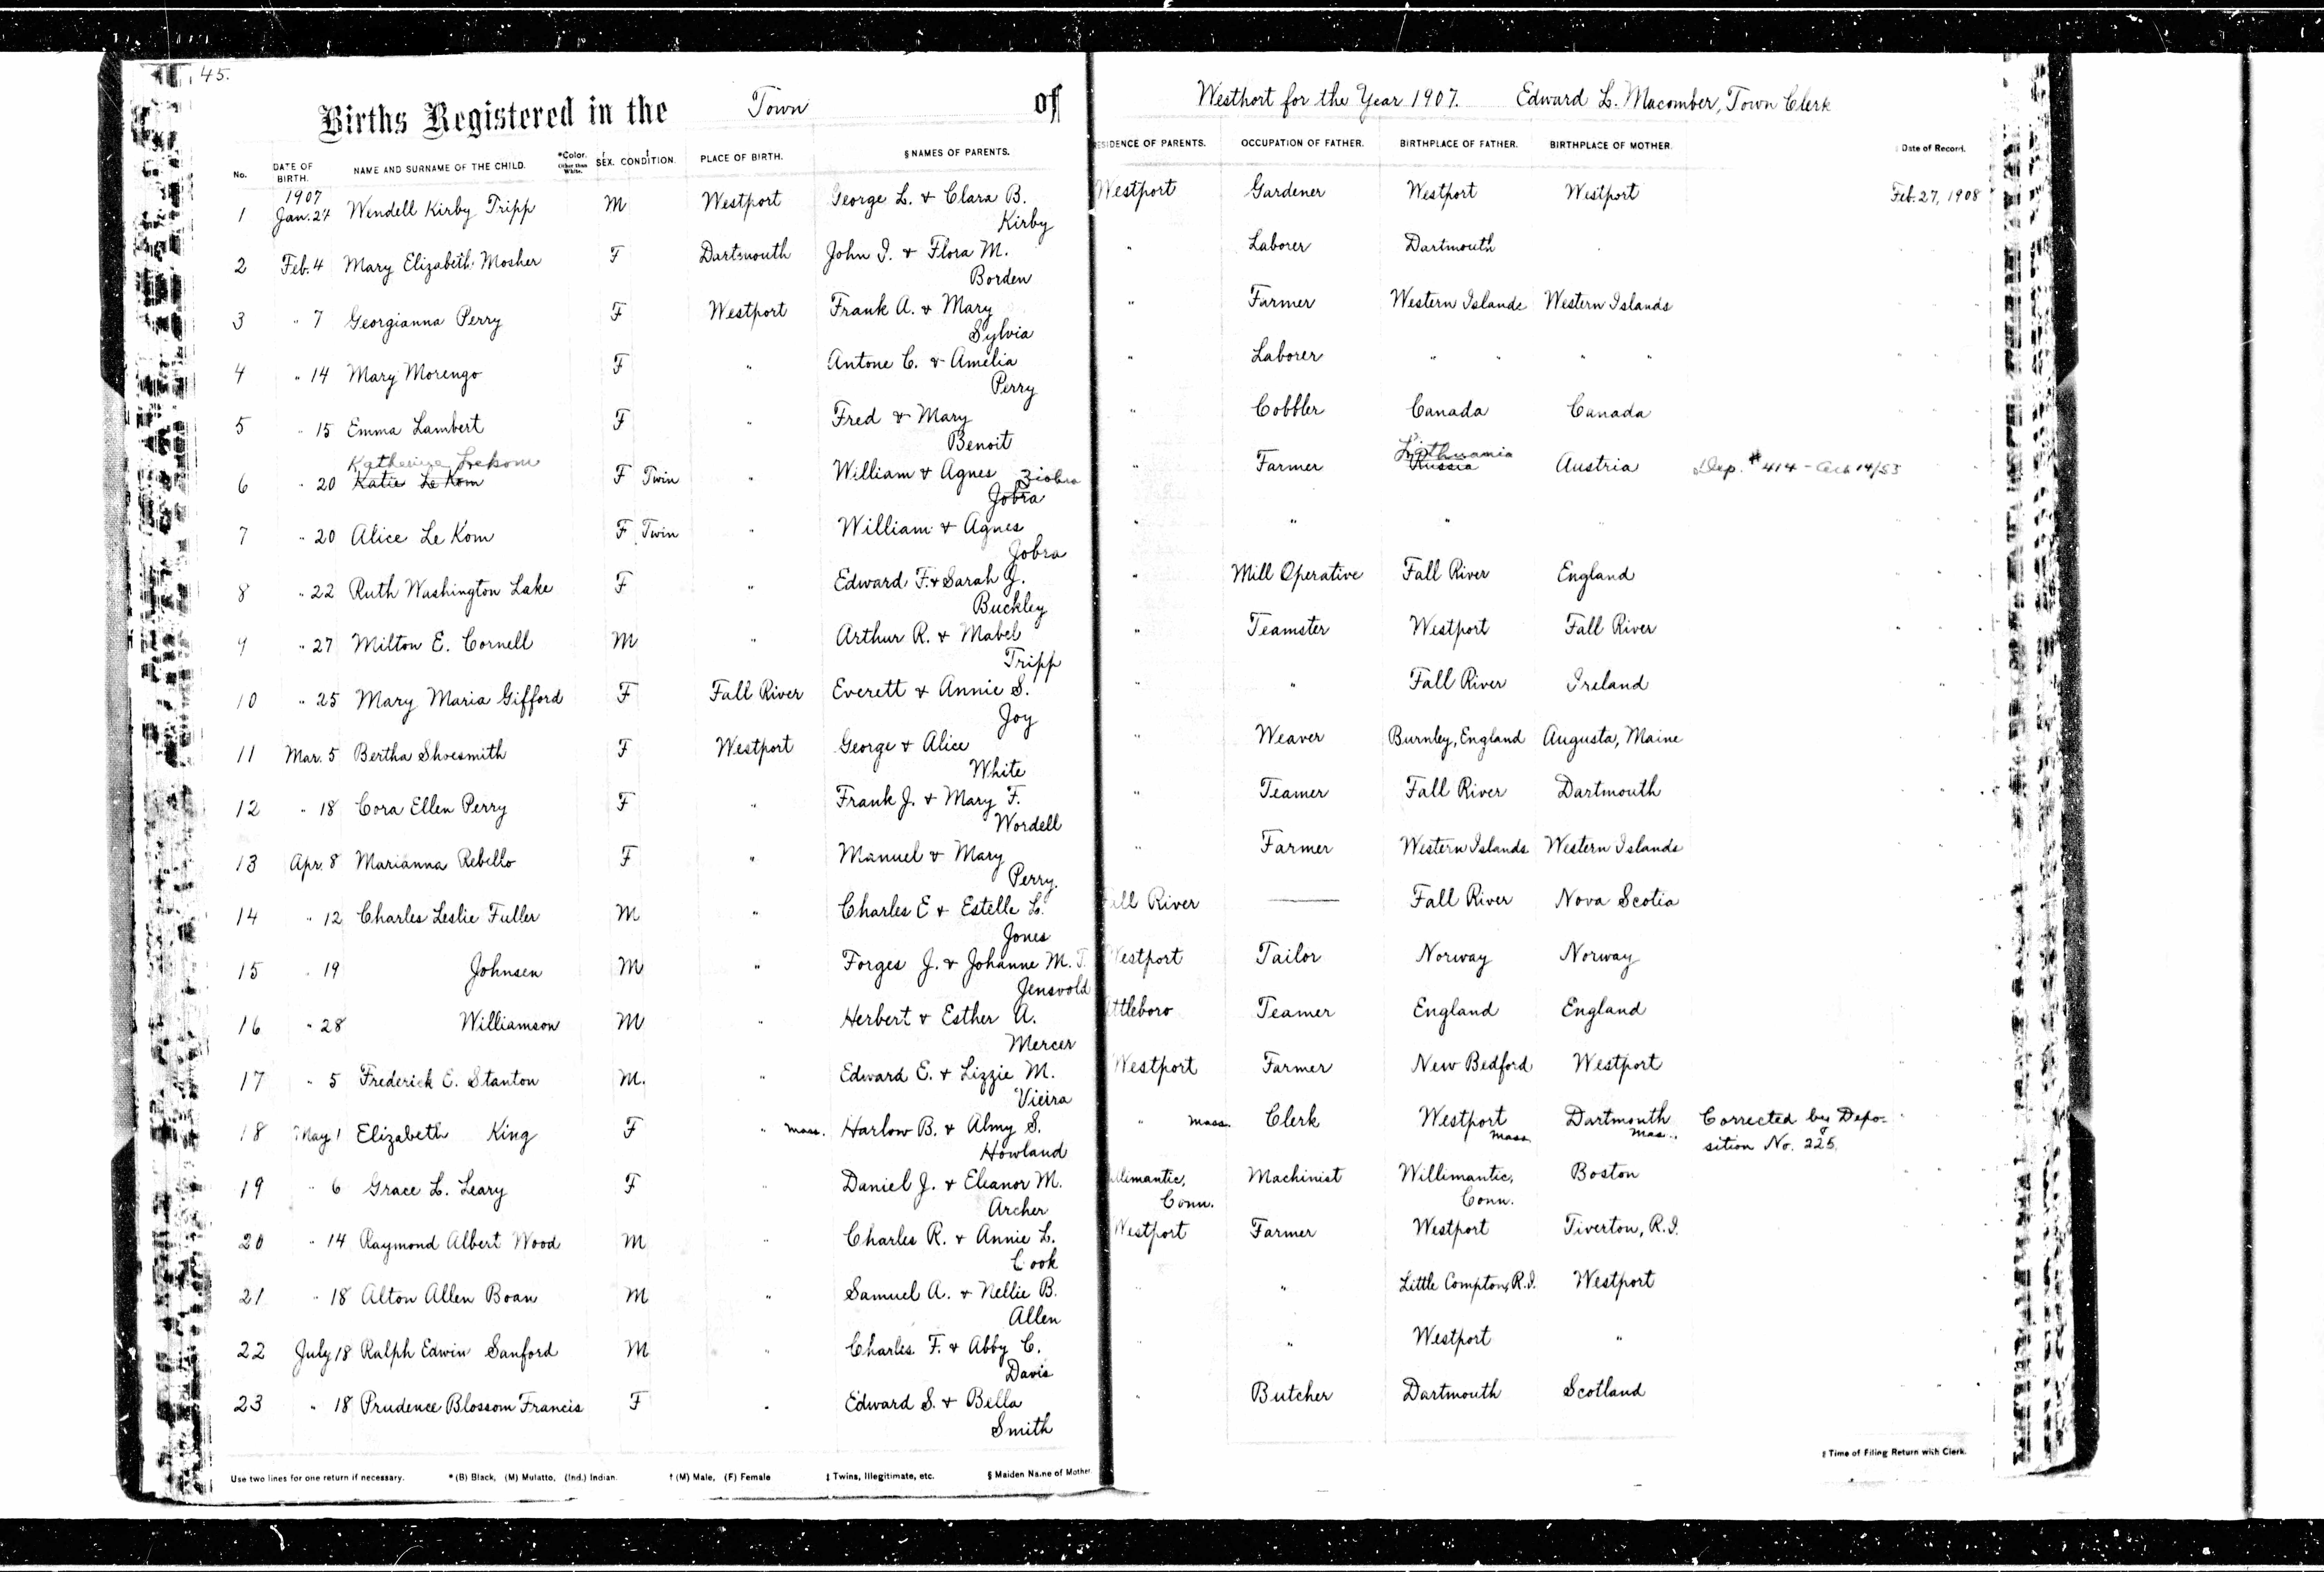 45.
Births Registered in the Town of Westport for the Year 1907. Edward L. Macomber, Town Clerk
No. DATE OF BIRTH. NAME AND SURNAME OF THE CHILD. *Color. Other than White. † SEX. ‡ CONDITION. PLACE OF BIRTH. § NAMES OF PARENTS. RESIDENCE OF PARENTS. OCCUPATION OF FATHER. BIRTHPLACE OF FATHER. BIRTHPLACE OF MOTHER. Date of Record.
1907
1 Jan. 24 Wendell Kirby Tripp M Westport George L. & Clara B. Westport Gardener Westport Westport Feb. 27, 1908
Kirby
2 Feb. 4 Mary Elizabeth Mosher F Dartmouth John I. & Flora M. " Laborer Dartmouth
Borden
3 " 7 Georgianna Perry F Westport Frank A. & Mary " Farmer Western Islands Western Islands
Sylvia
4 " 14 Mary Morengo F " Antone C. & Amelia " Laborer " " " "
Perry
5 " 15 Emma Lambert F " Fred & Mary " Cobbler Canada Canada
Benoit
Katherine Lekom Lithuania
6 " 20 Katie Le Kom F Twin " William & Agnes Ziobra " Farmer Russia Austria Dep. # 414 -
Jobra
7 " 20 Alice Le Kom F Twin " William & Agnes " " "
Jobra
8 " 22 Ruth Washington Lake F " Edward F. & Sarah J. " Mill Operative Fall River England
Buckley
9 " 27 Milton E. Cornell M " Arthur R. & Mabel " Teamster Westport Fall River
Tripp
10 " 25 Mary Maria Gifford F Fall River Everett & Annie S. " " Fall River Ireland
Joy
11 Mar. 5 Bertha Shoesmith F Westport George & Alice " Weaver Burnley, England Augusta, Maine
White
12 " 18 Cora Ellen Perry F " Frank J. & Mary F. " Teamer Fall River Dartmouth
Wordell
13 Apr. 8 Marianna Rebello F " Manuel & Mary " Farmer Western Islands Western Islands
Perry.
14 " 12 Charles Leslie Fuller M " Charles E & Estelle L. Fall River — Fall River Nova Scotia
Jones
15 " 19 Johnsen M " Forges J. & Johanne M. T. Westport Tailor Norway Norway
Jensvold
16 " 28 Williamson M " Herbert & Esther A. Attleboro Teamer England England
Mercer
17 " 5 Frederick E. Stanton M. " Edward E. & Lizzie M. Westport Farmer New Bedford Westport
Vieira
18 May 1 Elizabeth King F " Mass. Harlow B. & Almy S. " Mass. Clerk Westport Mass. Dartmouth Mass. Corrected by Depo-
Howland sition No. 225.
19 " 6 Grace L. Leary F " Daniel J. & Eleanor M. Willimantic, Machinist Willimantic, Boston
Archer Conn. Conn.
20 " 14 Raymond Albert Wood M " Charles R. & Annie L. Westport Farmer Westport Tiverton, R.I.
Cook
21 " 18 Alton Allen Boan M " Samuel A. & Nellie B. " " Little Compton, R.I. Westport
Allen
22 July 18 Ralph Edwin Sanford M " Charles F. & Abby C. " " Westport "
Davis
23 " 18 Prudence Blossom Francis F " Edward S. & Bella " Butcher Dartmouth Scotland
Smith
Use two lines for one return if necessary. * (B) Black, (M) Mulatto, (Ind.) Indian. † (M) Male, (F) Female ‡ Twins, Illegitimate, etc. § Maiden Name of Mother. ‡ Time of Filing Return with Clerk.